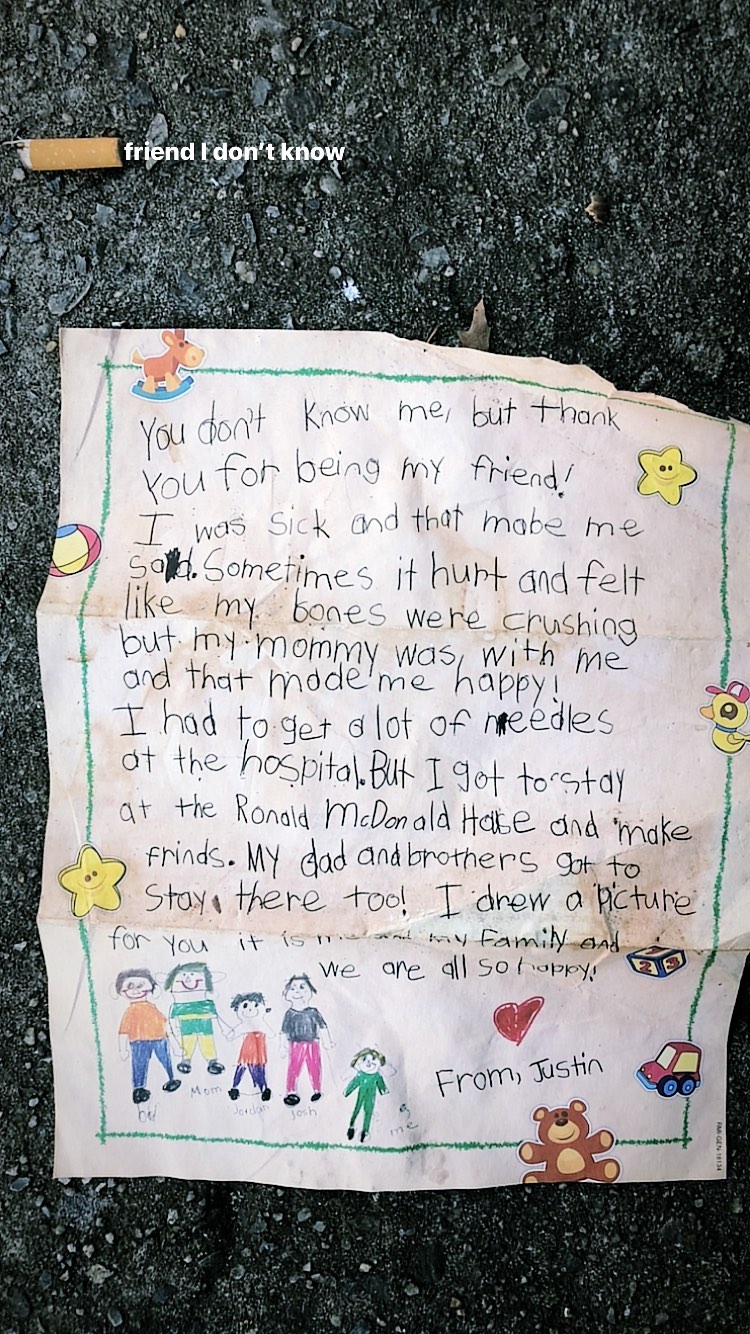 friend I don't know
You don't know me, but thank
you for being my friend!
I was sick and that mabe me
sad. Sometimes it hurt and felt
like my bones were crushing
but my mommy was with me
and that made me happy!
I had to get a lot of needles
at the hospital. But I got to stay
at the Ronald McDonald House and make
frinds. My dad and brothers got to
stay there too! I drew a picture
for you it is me and my family and
we are all so happy!
Mom
Jordan Josh
me
From, Justin
RMI-GEN-16134